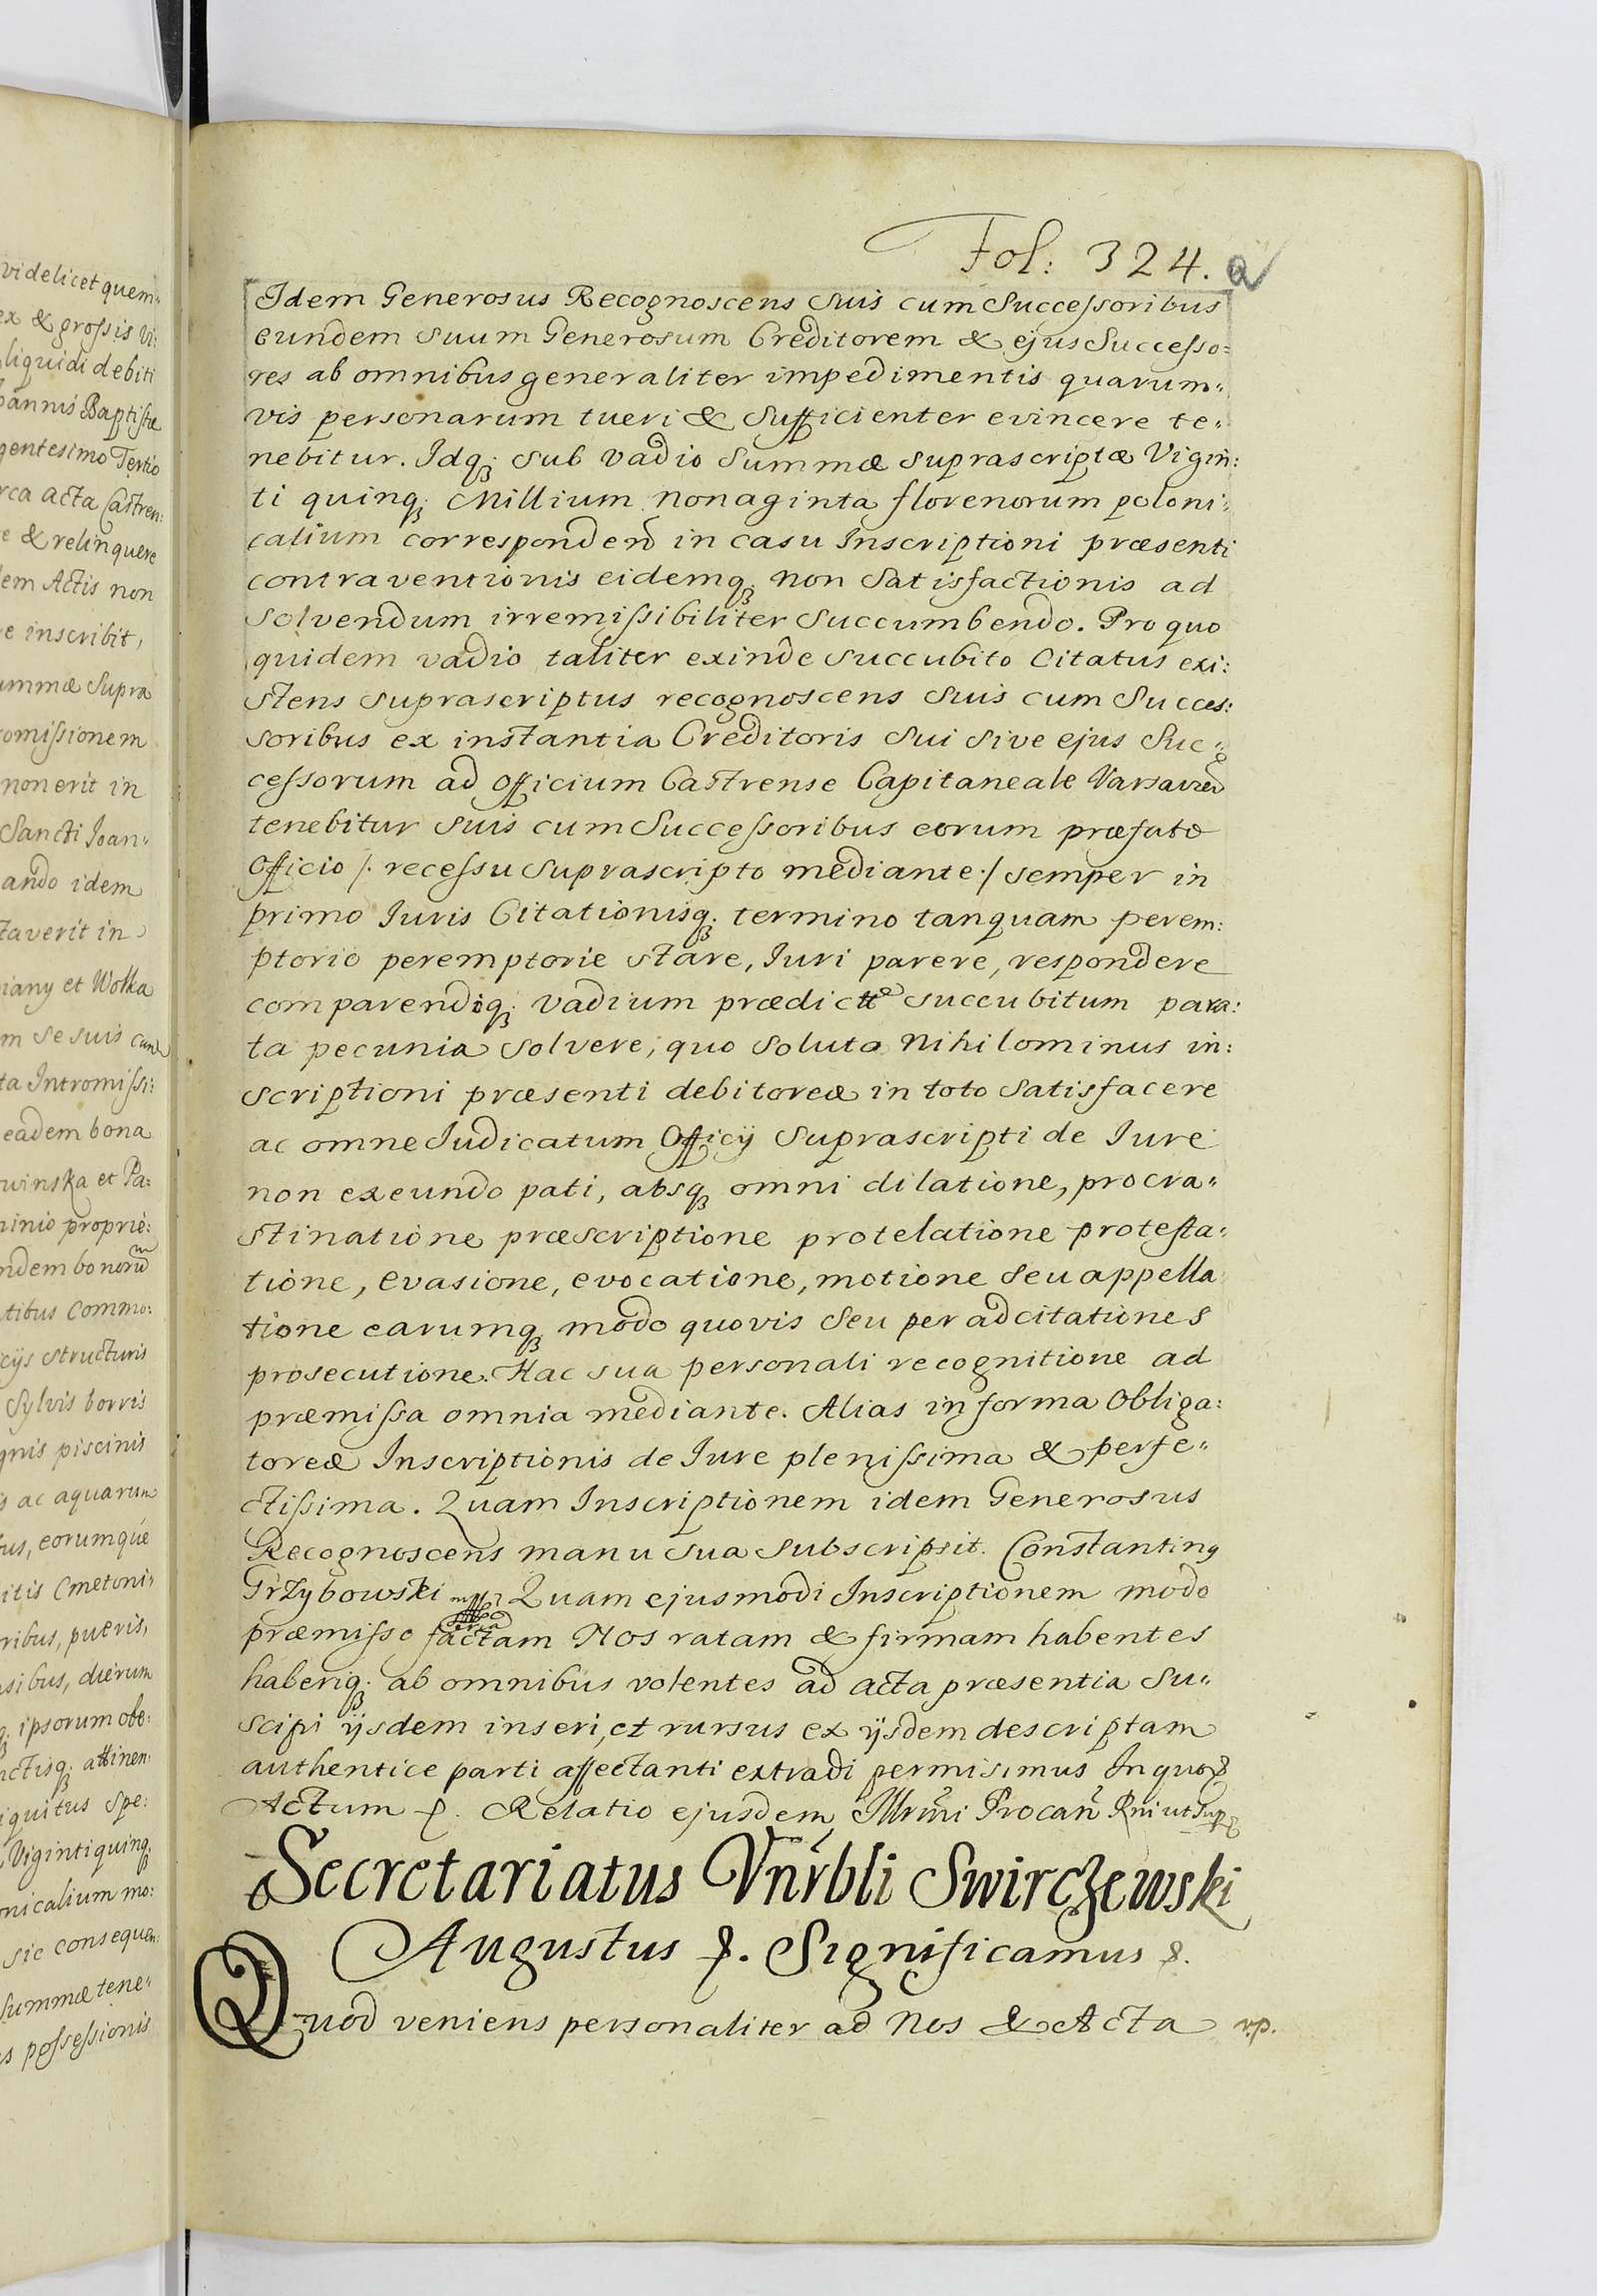 videlicet quem„
ex & grossis Vi:
liquidi debiti
oannis Baptistæ
gentesimo Tertio
rca acta Castren:
e & relinquere
dem Actis non
e inscribit,
ummæ Supra
omissionem
non erit in
Sancti Joan„
ando idem
taverit in
iany et Wolka
m se suis cum
ta Intromissi:
eadem bona
winska et Pa:
ninio proprie:
ndem bonorũ
tibus Commo:
cijs structuris
Sylvis borris
gnis piscinis
s ac aquarum
us, eorumque
itis Cmetoni„
ribus, pueris,
sibus, dierum
ipsorum obe:
nctisq; attinen:
iquitus Spe:
Viginti quinq;
nicalium mo:
sic consequen:
Summæ tene„
s possessionis
Fol: 324. a
Idem Generosus Recognoscens Suis cum Successoribus
eundem suum Generosum Creditorem & ejus Successo=
res ab omnibus generaliter impedimentis quarum„
vis personarum tueri & sufficienter evincere te„
nebitur. Idq; sub vadio Summæ suprascriptæ Vigin:
ti quinq; Millium nonaginta florenorum poloni„
calium corresponden̄ in casu Inscriptioni præsenti
contraventionis eidemq; non Satisfactionis ad
Solvendum irremissibiliter Succumbendo. Pro quo
quidem vadio taliter exinde succubito Citatus exi:
stens suprascriptus recognoscens suis cum Succes:
soribus ex instantia Creditoris sui sive ejus Suc„
cessorum ad Officium Castrense Capitaneale Varsavien̄
tenebitur suis cum Successoribus eorum præfato
Officio /. recessu suprascripto mediante ./ semper in
primo Iuris Citationisq; termino tanquam perem:
ptorio peremptorie stare, Iuri parere, respondere
comparendiq; vadium prædictt͠ succubitum para:
ta pecunia solvere, quo soluto nihilominus in:
scriptioni præsenti debitoreæ in toto Satisfacere
ac omne Iudicatum Officij suprascripti de Iure
non exeundo pati, absq; omni dilatione, procra„
stinatione præscriptione protelatione protesta„
tione, evasione, evocatione, motione seu appella
tione earumq; modo quovis seu per adcitationes
prosecutione. Hac sua personali recognitione ad
præmissa omnia mediante. Alias in forma Obliga:
toreæ Inscriptionis de Iure plenissima & perfe„
ctissima. Quam Inscriptionem idem Generosus
Recognoscens manu sua subscripsit. Constantinꝯ
Grzybowski mpp Quam ejusmodi Inscriptionem modo
præmisso factam Nos ratam & firmam habentes
haberiq; ab omnibus volentes ad acta præsentia su„
scipi ijsdem inseri, et rursus ex ijsdem descriptam
authentice parti affectanti extradi permisimus In quo &
Actum &. Relatio ejusdem Illrm̃i Procan̄ Rni ut Sup &
Secretariatus Vnrbli Swirczewski
Augustus &. Significamus &.
Quod veniens personaliter ad Nos & Acta v.p.